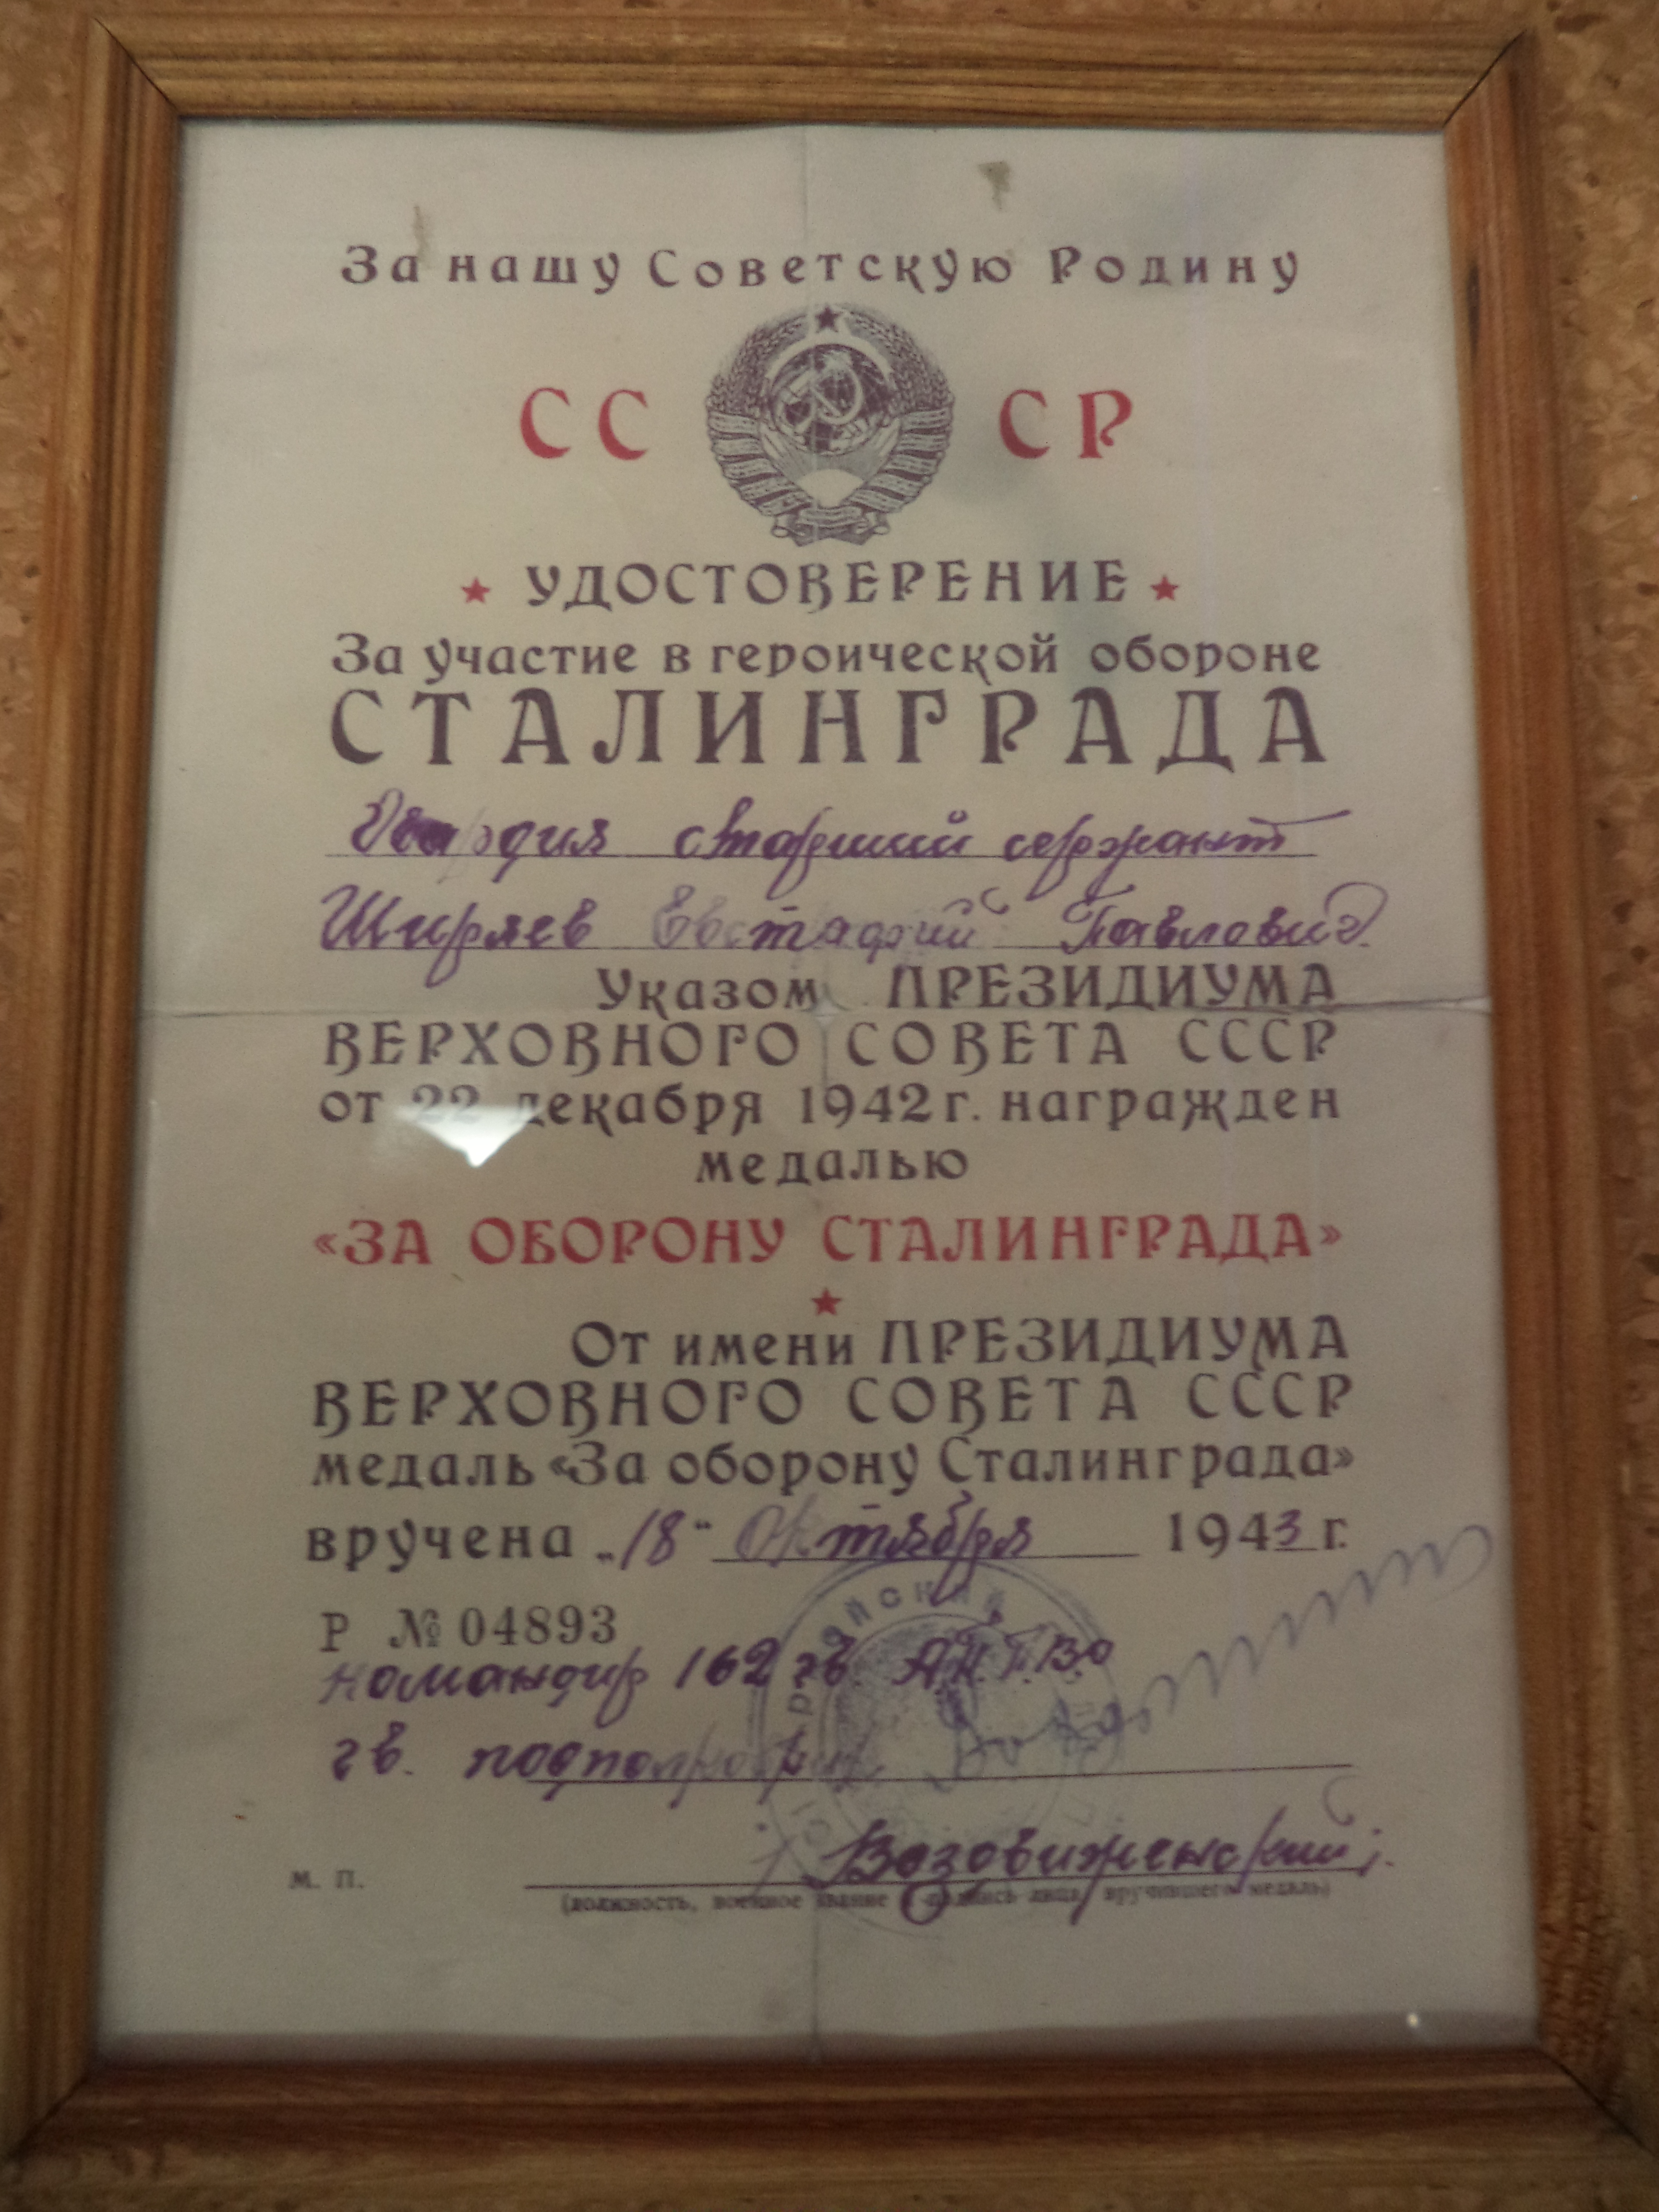 За нашу Советскую Родину
СС СР
УДОСТОВЕРЕНИЕ
За участие в героической обороне
СТАЛИНГРАДА
Гвардия старший сержант
Ширяев Евстафий Павлович.
Указом ПРЕЗИДИУМА
ВЕРХОВНОГО СОВЕТА СССР
от 22 декабря 1942 г. награжден
медалью
«ЗА ОБОРОНУ СТАЛИНГРАДА»
От имени ПРЕЗИДИУМА
ВЕРХОВНОГО СОВЕТА СССР
медаль «За оборону Сталинграда»
вручена „18“ Октября 1943 г.
Р № 04893
командир 162 гв. А.П.
гв. подполковник
М. П.
(должность, военное звание и подпись лица, вручившего медаль)